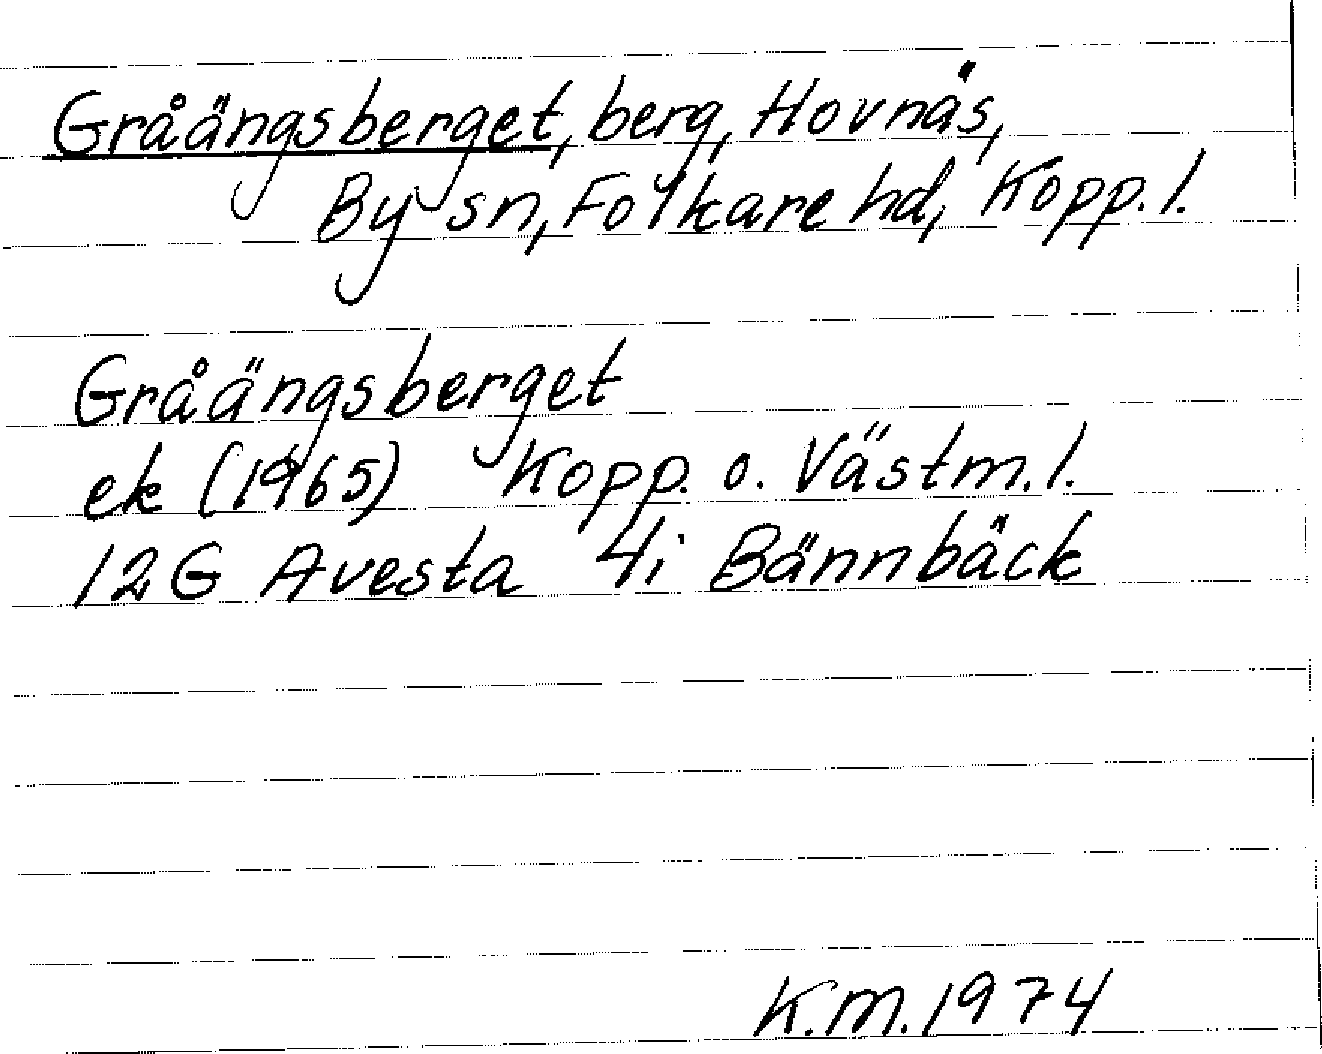 Gråängsberget, berg, Hovnäs,
By sn, Folkare hd, Kopp. l.
Gråängsberget
ek (1965) Kopp. o. Västm. l.
12 G Avesta 4i Bännbäck
K.M. 1974